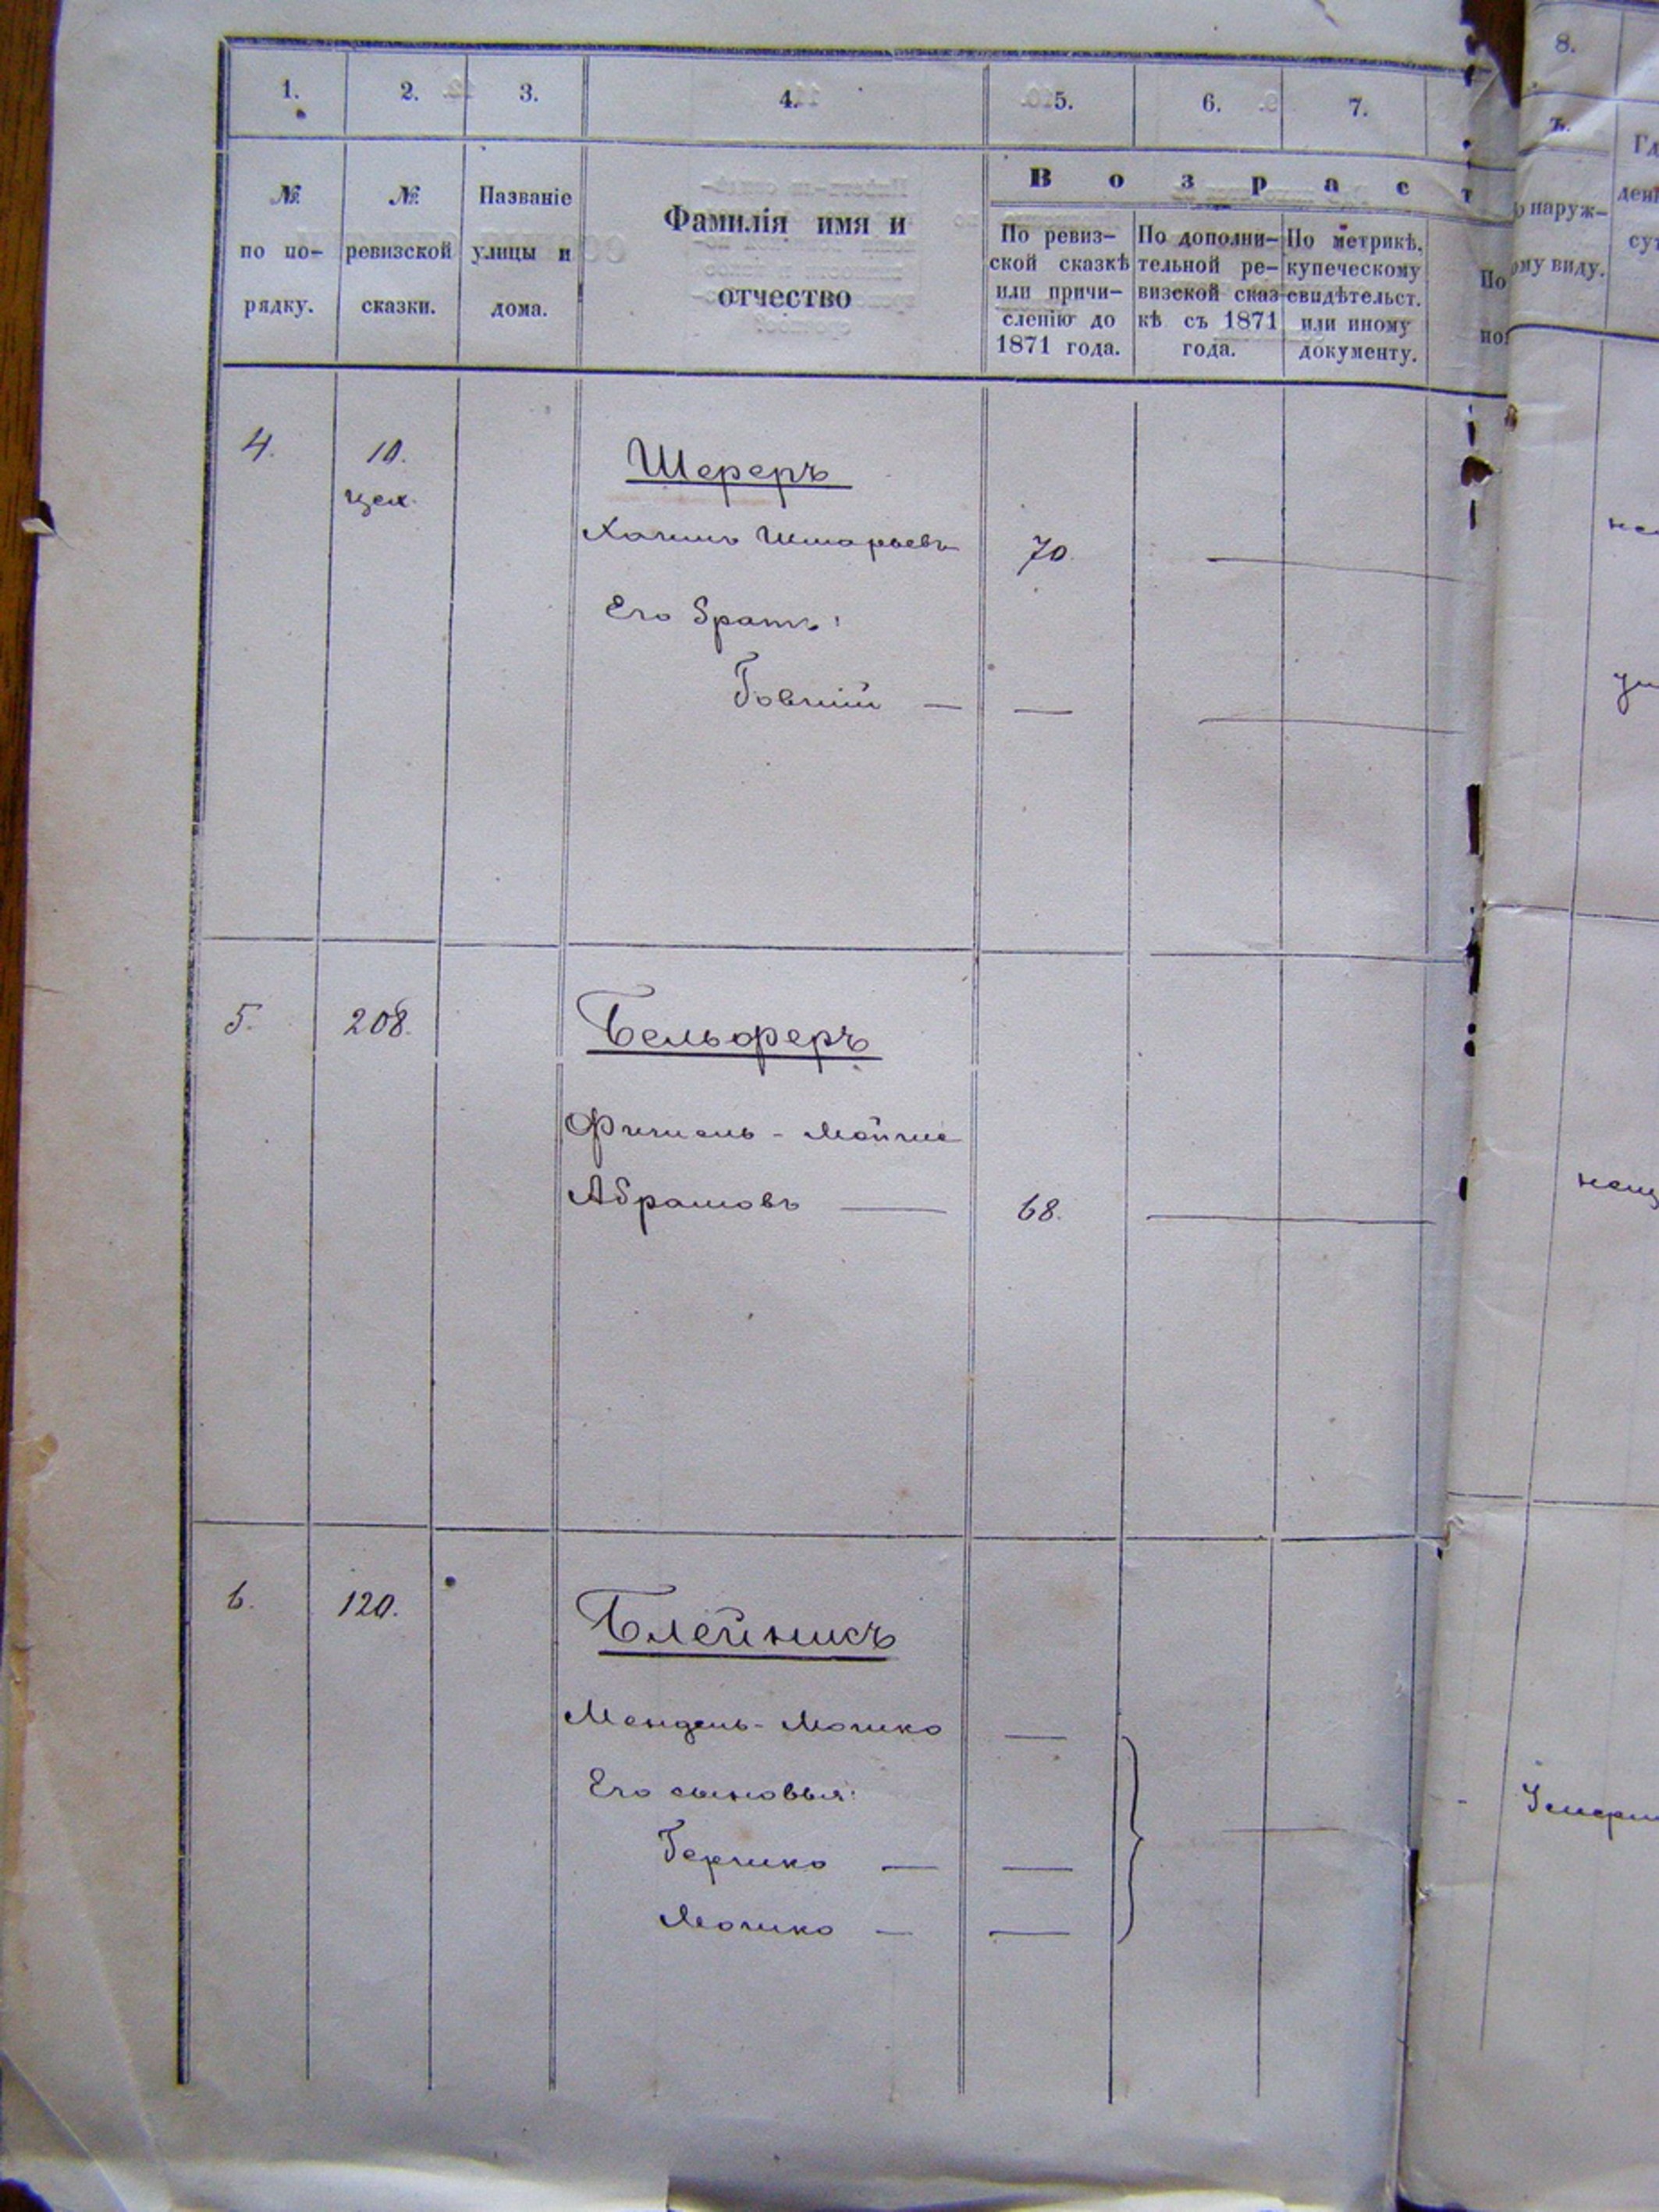 1. 2. 3. 4. 5. 6. 7.
№ по по-рядку.
№ ревизской сказки.
Названіе улицы и дома.
Фамилія имя и отчество
В о з р а с т
По ревиз-
ской сказкѣ
или причи-
сленію до
1871 года.
По дополни-
тельной ре-
визской сказ-
кѣ съ 1871
года.
По метрикѣ,
купеческому
свидѣтельст.
или иному
документу.
4. 10. Шереръ
цех.
Хаимъ Шмарьевъ 70.
Его братъ:
5. 208. Бельферъ
Абрамовъ — 68.
6. 120. Блейникъ
Мендель-Мошко —
Его сыновья:
Гершко — —
Мошко — —
8.
наруж-
ому виду.